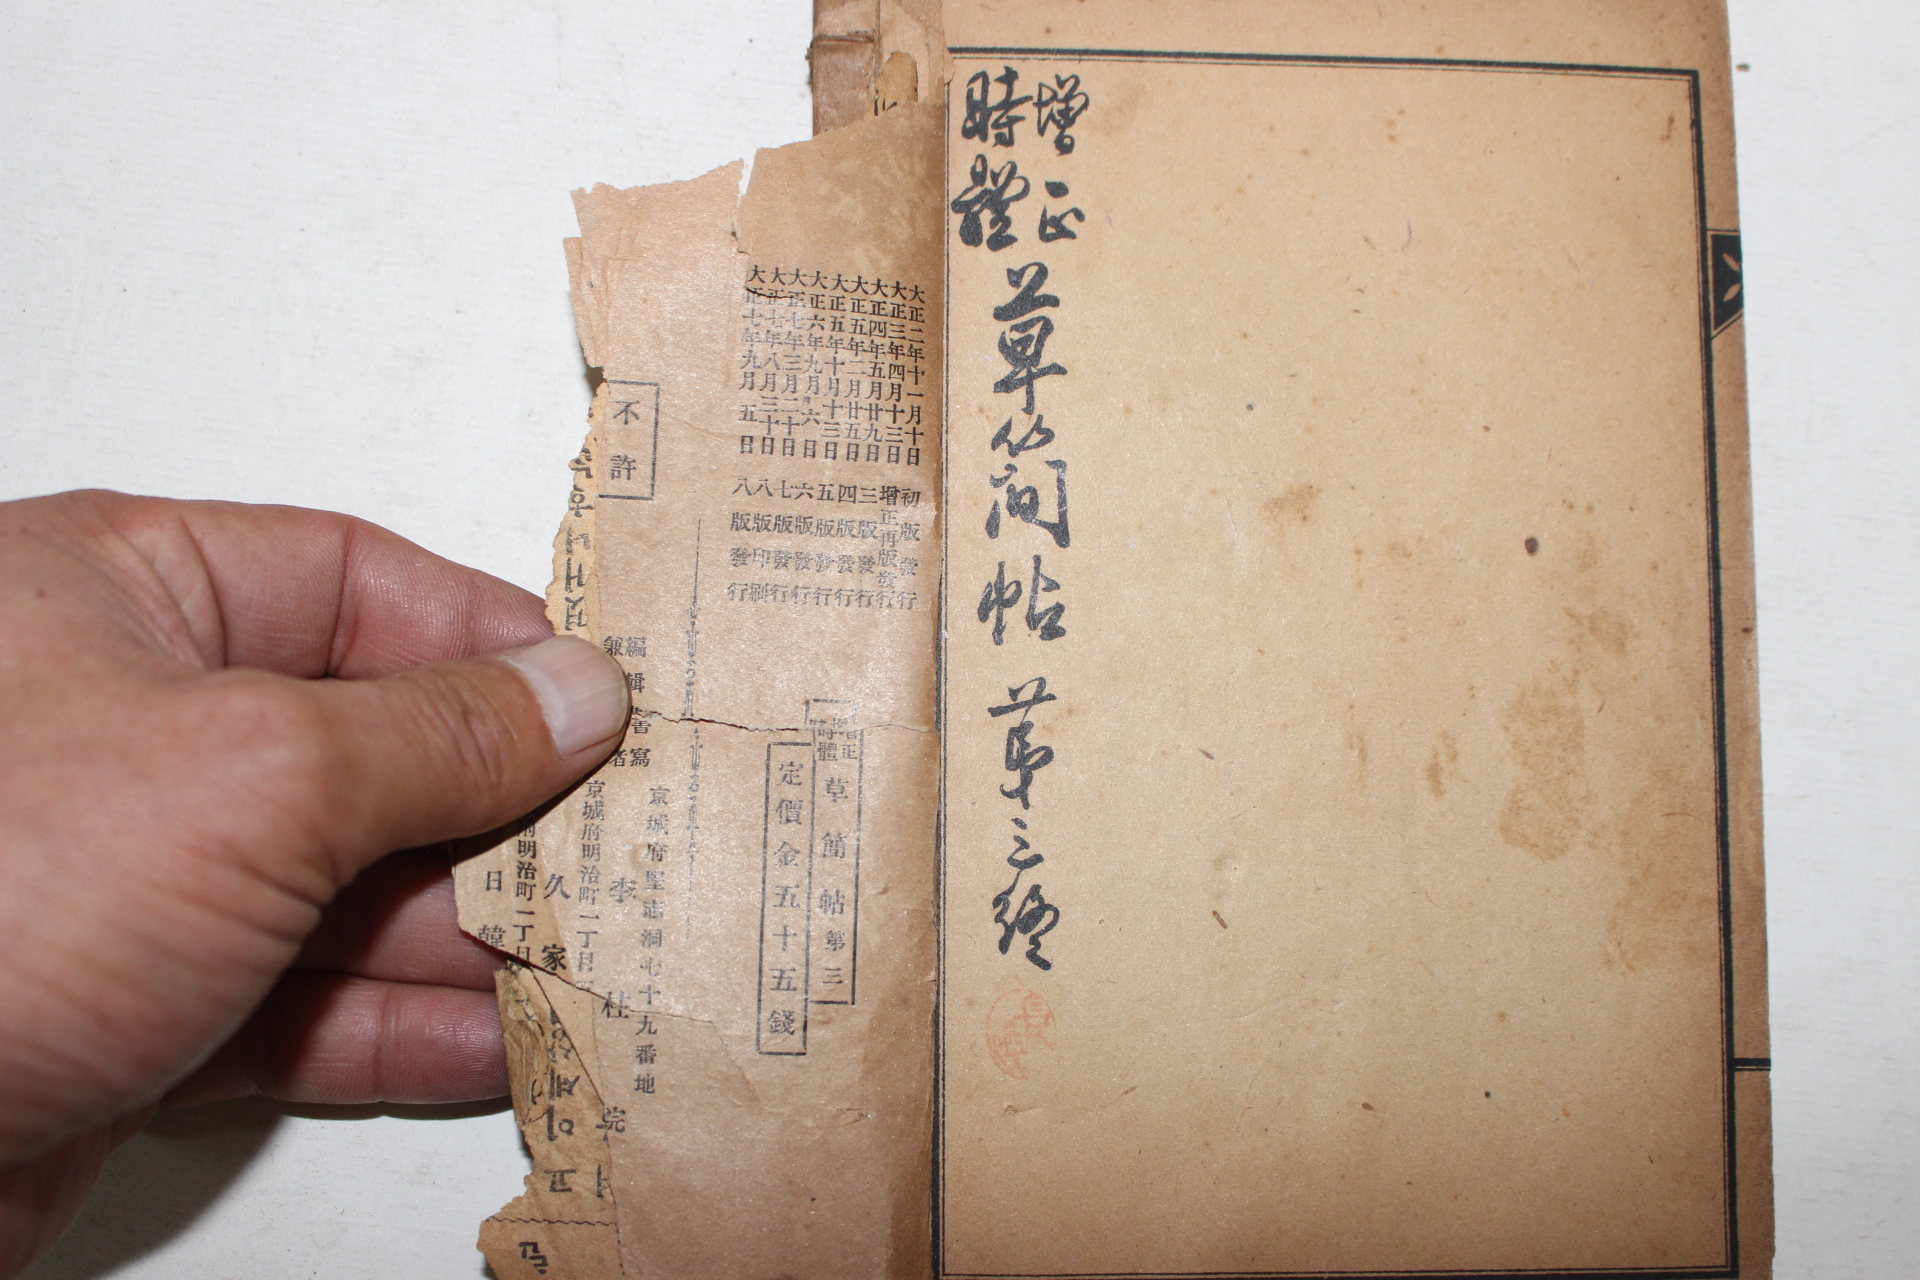 增正
時體
草簡帖第三終
大正二年十一月十日初版發行
大正三年四月十三日增正再版發行
大正四年五月廿九日三版發行
大正五年二月廿五日四版發行
大正五年十月十三日五版發行
大正六年九月六日六版發行
大正七年三月二十日七版發行
大正七年八月三十日八版印刷
大正七年九月五日八版發行
增正
時體
草簡帖第三
定價金五十五錢
不許
編輯
兼書寫者
京城府堅志洞七十九番地
李柱完
京城府明治町一丁目
久家
府明治町一丁目
日韓